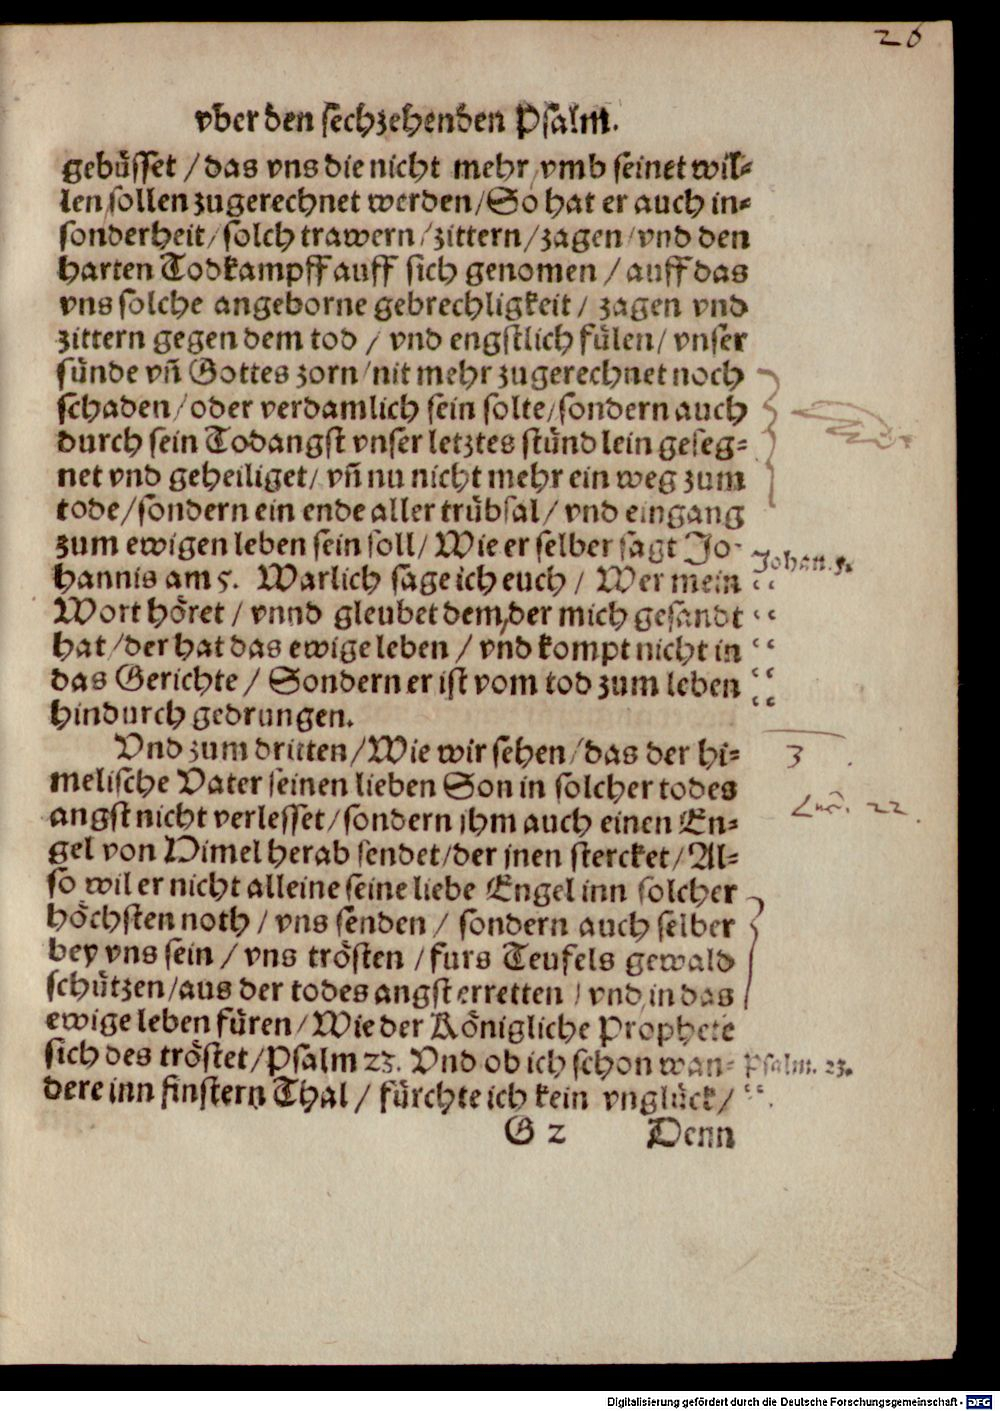 26
vber den sechzehenden Psalm.
gebüsset / das vns die nicht mehr / vmb seinet wil⸗
len / sollen zugerechnet werden / So hat er auch in⸗
sonderheit / solch trawern / zittern / zagen / vnd den
harten Todkampff auff sich genomen / auff das
vns solche angeborne gebrechligkeit / zagen vnd
zittern gegen dem tod / vnd engstlich fülen / vnser
sünde vñ Gottes zorn / nit mehr zugerechnet noch
schaden / oder verdamlich sein solte / sondern auch
durch sein Todangst vnser letztes stündlein geseg⸗
net vnd geheiliget / vñ nu nicht mehr ein weg zum
tode / sondern ein ende aller trübsal / vnd eingang
zum ewigen leben sein soll / Wie er selber sagt Jo⸗
hannis am 5. Warlich sage ich euch / Wer mein
Johan. 5.
Wort höret / vnnd gleubet dem / der mich gesandt
hat / der hat das ewige leben / vnd kompt nicht in
das Gerichte / Sondern er ist vom tod zum leben
hindurch gedrungen.
Vnd zum dritten / Wie wir sehen / das der hi⸗
3
melische Vater seinen lieben Son in solcher todes
Luc. 22.
angst nicht verlesset / sondern jhm auch einen En⸗
gel von Himel herab sendet / der jnen stercket / Al⸗
so wil er nicht alleine seine liebe Engel inn solcher
höchsten noth / vns senden / sondern auch selber
bey vns sein / vns trösten / furs Teufels gewald
schützen / aus der todes angst erretten / vnd in das
ewige leben füren / Wie der Königliche Prophete
sich des tröstet / Psalm 23. Vnd ob ich schon wan⸗
Psalm. 23.
dere inn finstern Thal / fürchte ich kein vnglück /
G 2 Denn
Digitalisierung gefördert durch die Deutsche Forschungsgemeinschaft - DFG